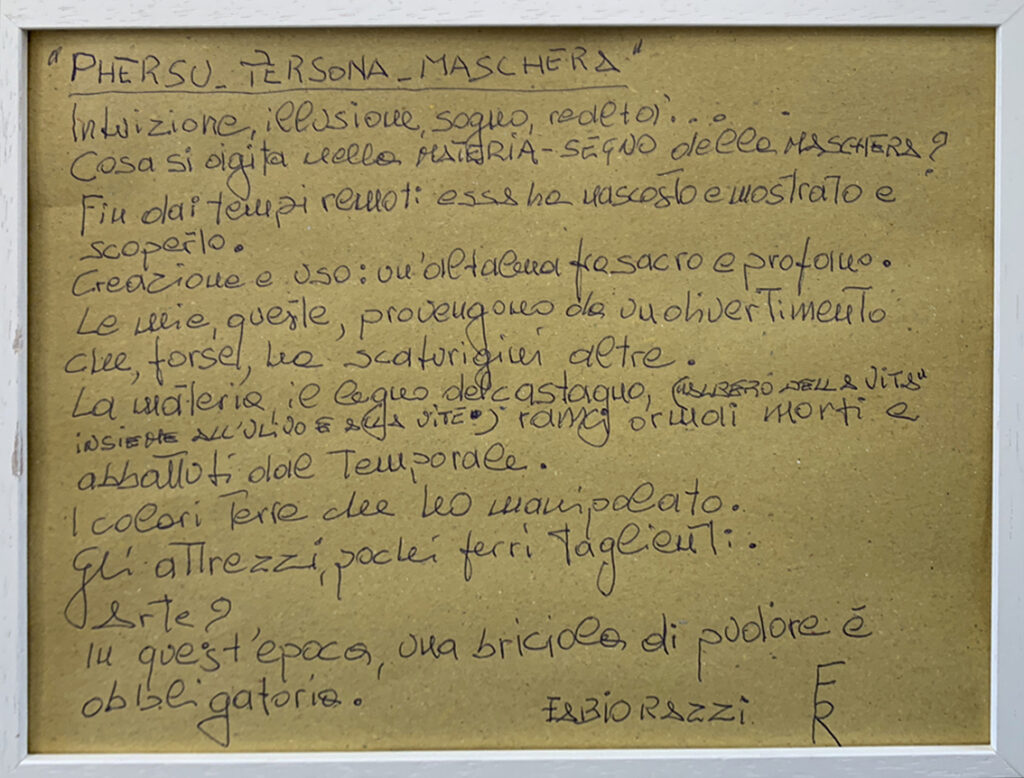 "PHERSU_PERSONA_MASCHERA"
Intuizione, illusione, sogno, realtà...
Cosa si agita nella MATERIA-SEGNO della MASCHERA?
Fin dai tempi remoti essa ha nascosto e mostrato e
scoperto.
Creazione e uso: un'altalena fra sacro e profano.
Le mie, queste, provengono da un divertimento
che, forse, ha scaturigini altre.
La materia, il legno del castagno, ("ALBERO DELLA VITA"
INSIEME ALL'ULIVO E ALLA VITE.) rami ormai morti e
abbattuti dal Temporale.
I colori Terre che ho manipolato.
Gli attrezzi, pochi ferri Taglienti.
Arte?
In quest'epoca, una briciola di pudore è
obbligatoria.
FABIO RAZZI FR